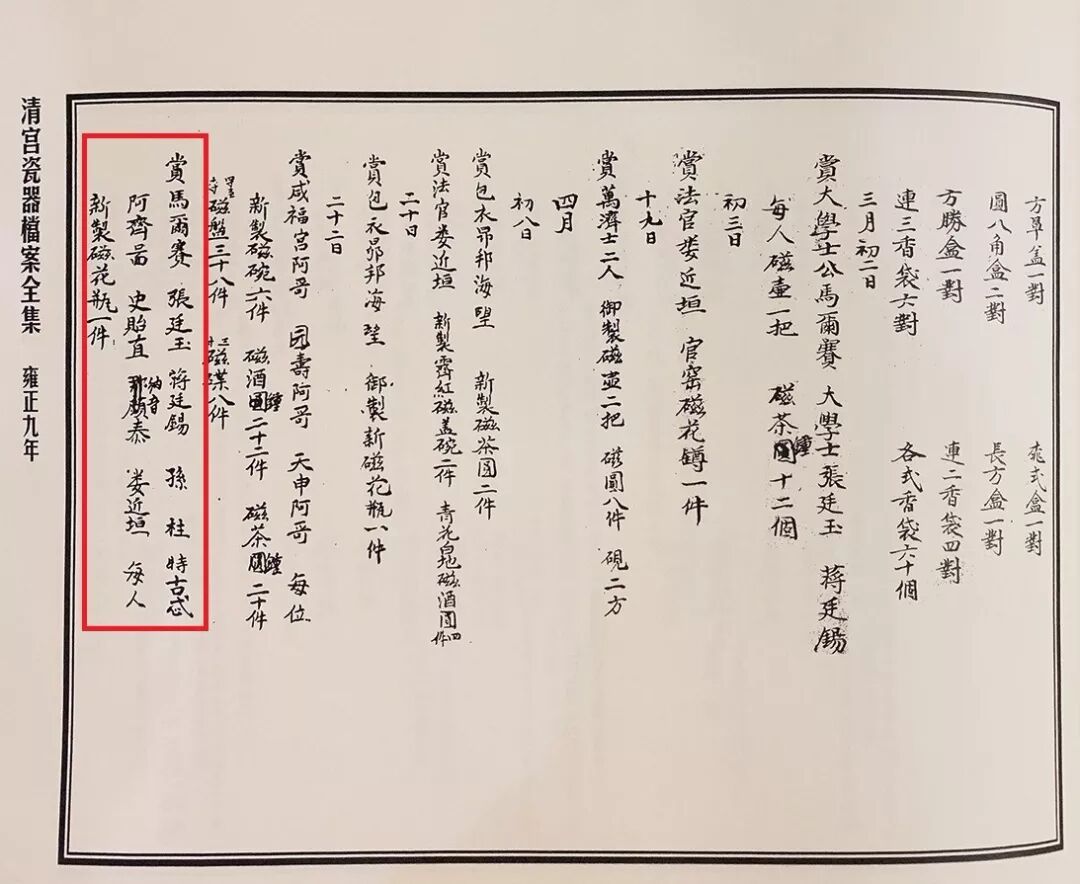 清宮瓷器檔案全集 雍正九年
方罩盖一對
圓八角盒二對 長方盒一對
方勝盒一對 連二香袋四對
連三香袋六對 各式香袋六十個
三月初二日
賞大學士公馬爾賽 大學士張廷玉 蔣廷錫
每人磁壶一把 磁茶鍾十二個
初三日
賞法官娄近垣 官窑磁花罇一件
十九日
賞萬濟士二人 御製磁壶二把 磁圓八件 硯二方
四月
初八日
賞包衣昂邦海望 新製磁茶圓二件
賞法官娄近垣 新製霽紅磁盖碗二件 青花白地磁酒圓四件
二十日
賞包衣昂邦海望 御製新磁花瓶一件
二十二日
賞咸福宮阿哥 园壽阿哥 天申阿哥 每位
新製磁碗六件 磁酒鍾二十二件 磁茶鍾二十件
磁盤三十八件 磁碟八件
賞馬爾賽 張廷玉 蔣廷錫 孫柱 特古忒
阿齊畕 史貽直 顧泰 娄近垣 每人
新製磁花瓶一件